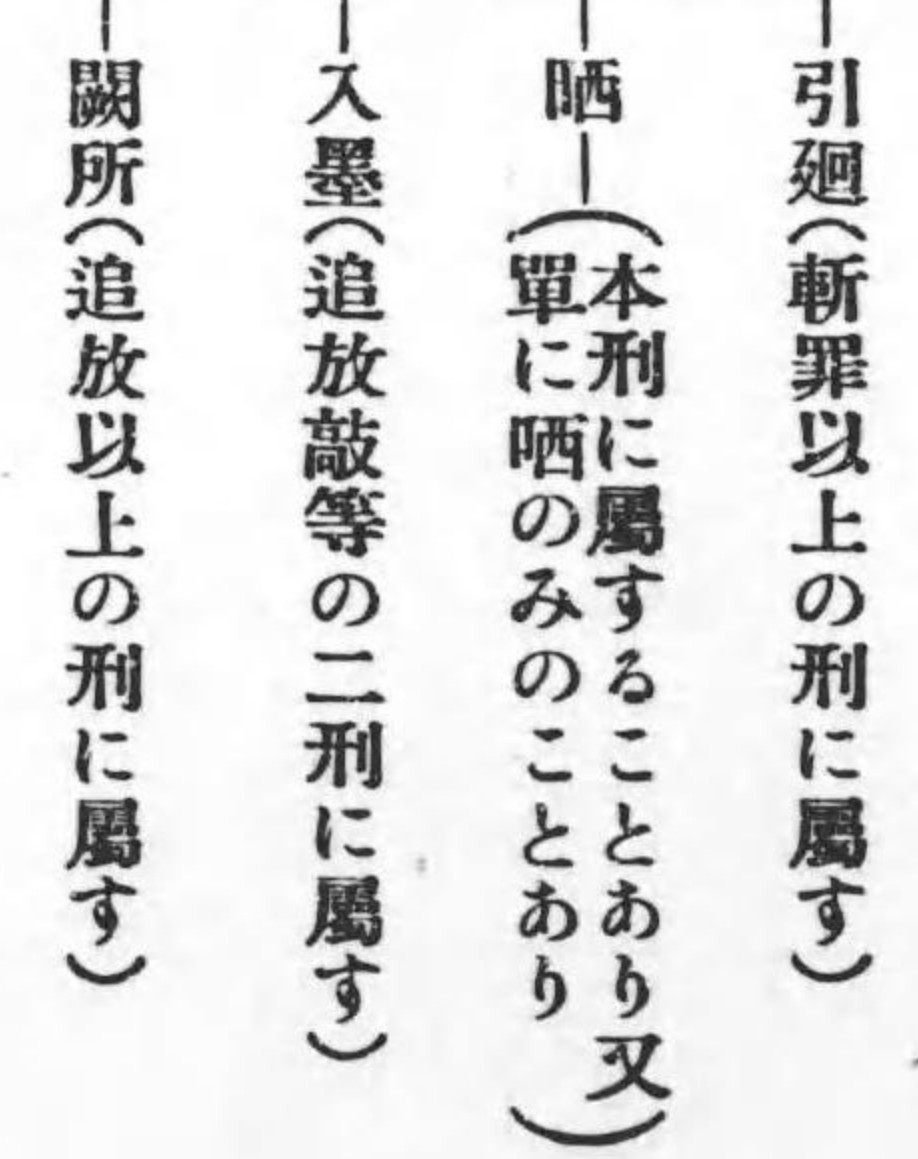 引廻(斬罪以上の刑に屬す)
晒―(本刑に屬することあり又
單に哂のみのことあり)
入墨(追放敲等の二刑に屬す)
闕所(追放以上の刑に屬す)